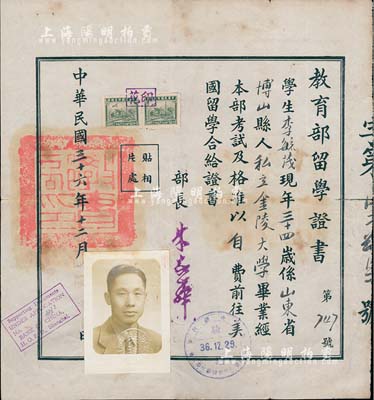 上海阳明拍卖
教育部留學證書
第747號
學生李毓茂現年三十四歲係山東省
博山縣人私立金陵大學畢業經
本部考試及格准以自費前往美
國留學合給證書
部長 朱家驊
貼相
片處
印花
中華民國三十六年十二月 日
36.12.29
Supporting Documents
UNDER
BANK OF CHINA,
H. O. Shanghai